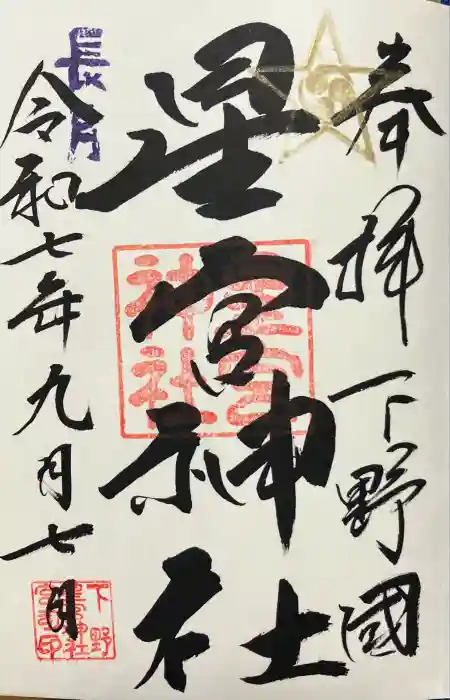 奉拝 下野國
星宮神社
長月
令和七年九月七日
星宮神社
下野
星宮神社
宮司印